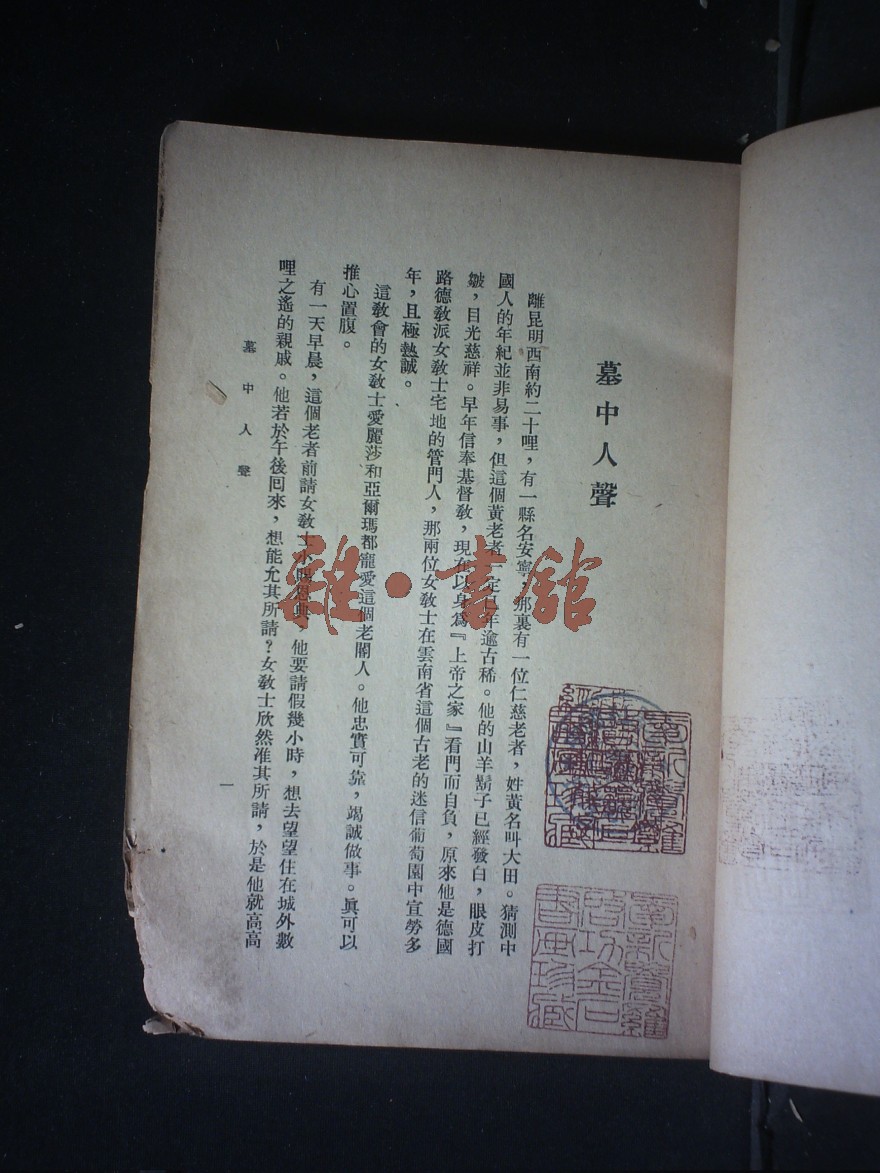 墓中人聲
離昆明西南約二十哩，有一縣名安寧，那裏有一位仁慈老者，姓黃名叫大田。猜測中
國人的年紀並非易事，但這個黃老者一定已年逾古稀。他的山羊鬍子已經發白，眼皮打
皺，目光慈祥。早年信奉基督教，現在以身為『上帝之家』看門而自負，原來他是德國
路德教派女教士宅地的管門人，那兩位女教士在雲南省這個古老的迷信葡萄園中宣勞多
年，且極熱誠。
這教會的女教士愛麗莎和亞爾瑪都寵愛這個老閽人。他忠實可靠，竭誠做事。眞可以
推心置腹。
有一天早晨，這個老者前請女教士小賜恩典，他要請假幾小時，想去望望住在城外數
哩之遙的親戚。他若於午後囘來，想能允其所請？女教士欣然准其所請，於是他就高高
墓中人聲
一
雜·書館